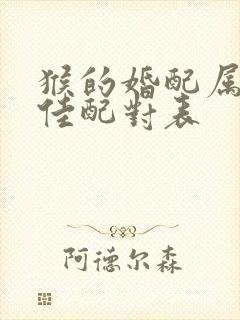 猴的婚配属
佳配對表
阿德尔森